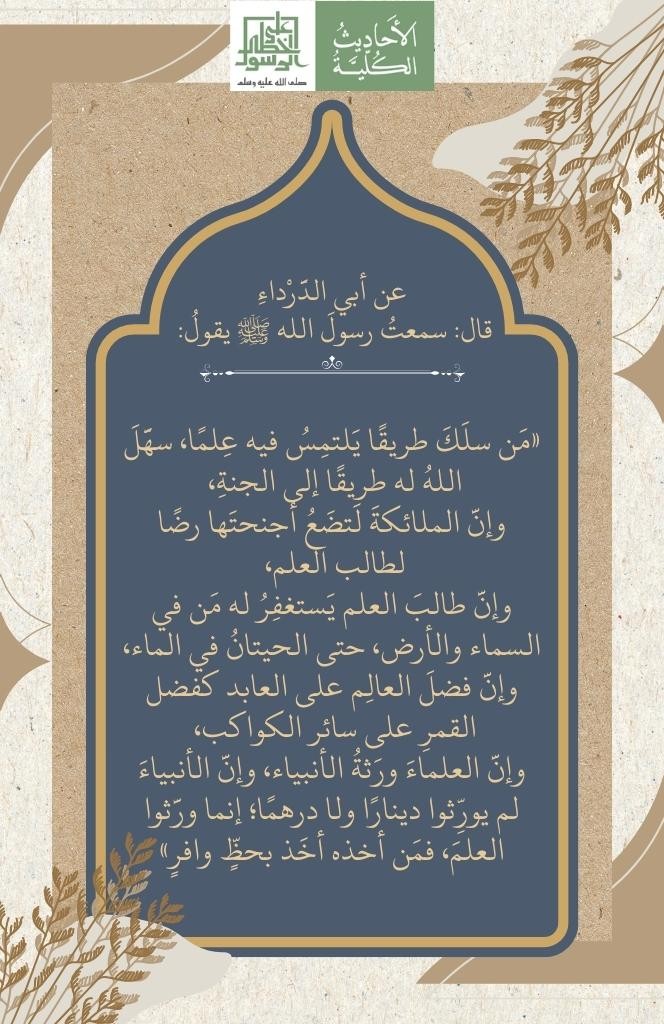 على
خطى
الرسول
صلى الله عليه وسلم
الأحَاديثُ
الكُلّيَّةُ
عن أبي الدّرْداءِ
قال: سمعتُ رسولَ الله ﷺ يقولُ:
«مَن سلَكَ طريقًا يَلتمِسُ فيه عِلمًا، سهّلَ
اللهُ له طريقًا إلى الجنةِ،
وإنّ الملائكةَ لَتضَعُ أجنحتَها رضًا
لطالب العلم،
وإنّ طالبَ العلم يَستغفِرُ له مَن في
السماء والأرض، حتى الحيتانُ في الماء،
وإنّ فضلَ العالِم على العابد كفضل
القمرِ على سائر الكواكب،
وإنّ العلماءَ ورَثةُ الأنبياء، وإنّ الأنبياءَ
لم يورِّثوا دينارًا ولا درهمًا؛ إنما ورّثوا
العلمَ، فمَن أخذه أخَذ بحظٍّ وافرٍ»